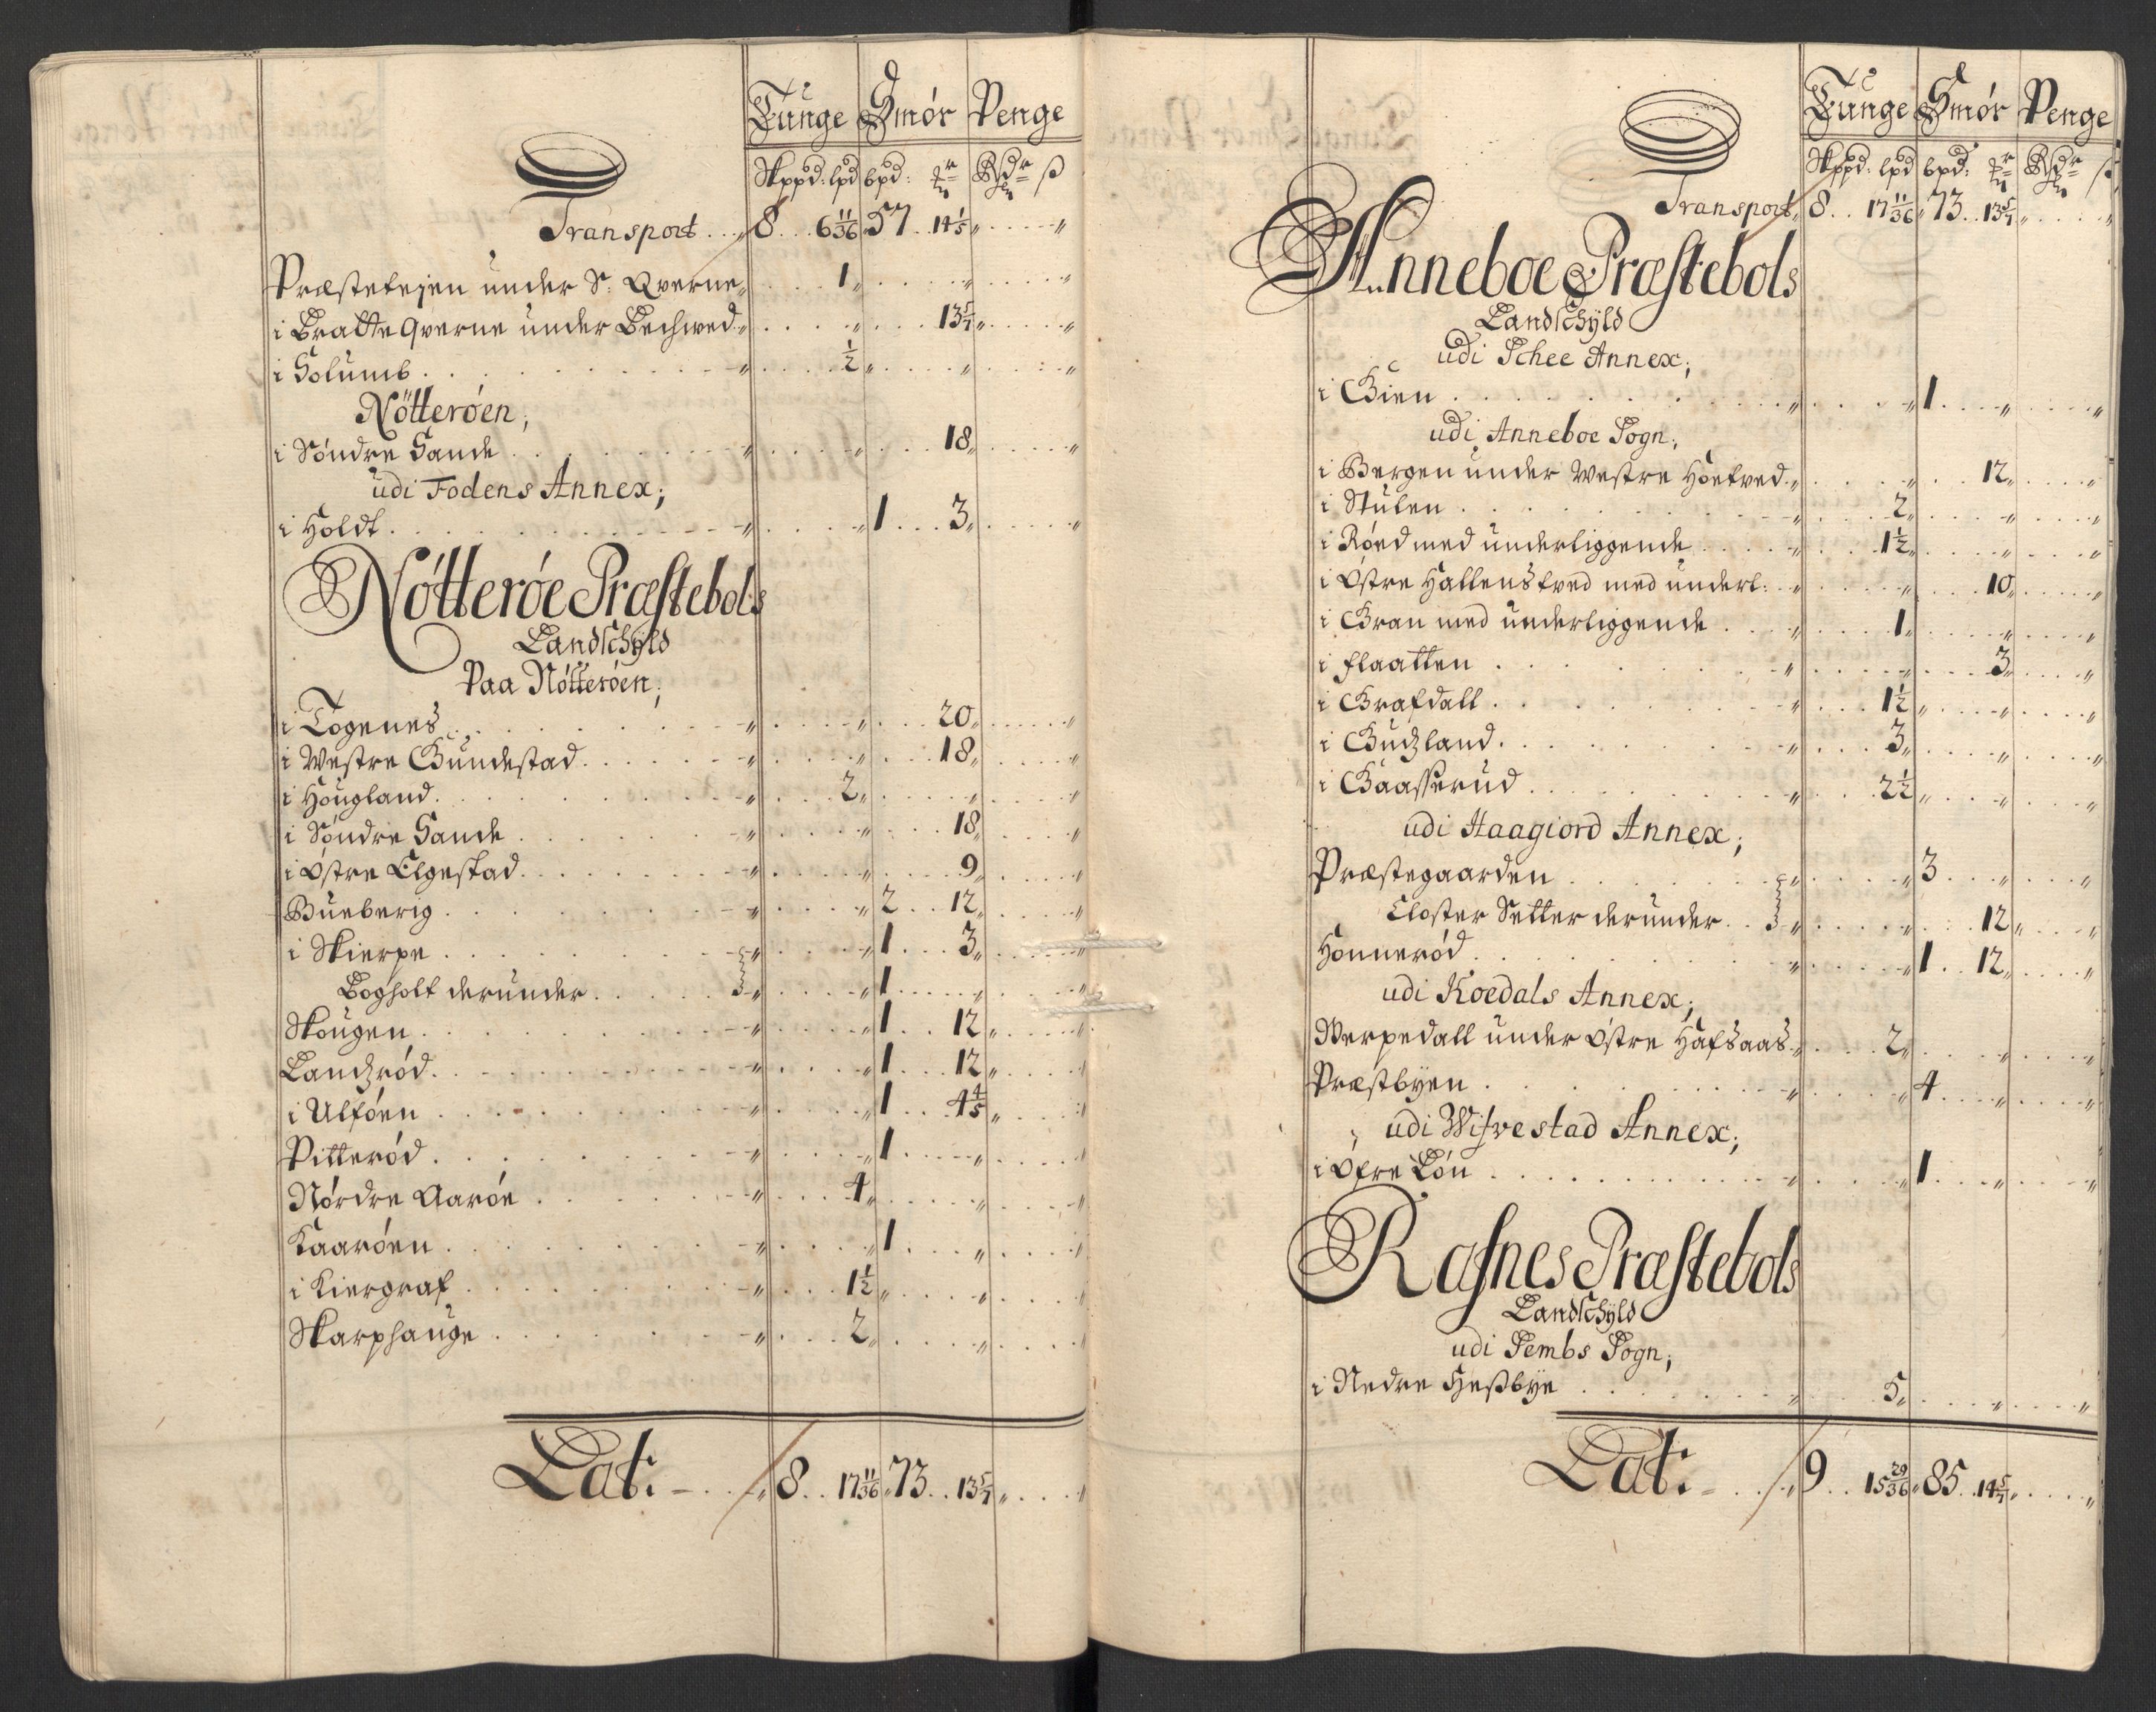 Tunge Smör Penge
Skppd: lpd bpd: Rdr ß
Transport 8 6 11/36 57 14 1/5
Præstetejen under Sr. Qverne 1
i Bratte Qverne under Bechwed 13 5/7
i Solumb 1/2
Nötteröen;
i Söndre Sande 18
udi Fodens Annex;
i Holdt 1 3
Nötteröe Præstebols
Landschÿld
Paa Nötteröen;
i Togenes 20
i Westre Gundestad 18
i Hougland 2
i Söndre Sande 18
i Östre Elgestad 9
Bueberig 2 12
i Skierpe 1 3
Bogholt derunder 1
Skougen 1 12
Landzröd 1 12
i Ulföen 1 4 4/5
Pitteröd 1
Nördre Aaröe 4
Kaaröen 1
i Kiergraf 1 1/2
Skarphauge 2
Lat: 8 17 11/36 73 13 5/7
Tunge Smör Penge
Skppd: lpd bpd: Rdr ß
Transport 8 17 11/36 73 13 5/7
Anneboe Præstebols
Landschÿld
udi Schee Annex;
i Gien 1
udi Anneboe Sogn;
i Bergen under Westre Höetved 12
i Stulen 2
i Röed med underliggende 1 1/2
i Östre Hallenstved med underl: 10
i Gran med underliggende 1
i Flaatten 3
i Grafdall 1 1/2
i Gudzland 3
i Gaasserud 2 1/2
udi Haagiord Annex;
Præstegaarden 3
Closter Setter derunder 12
Honneröd 1 12
udi Koedals Annex;
Werpedall under Östre Hafsaas 2
Præstbyen 4
udi Wifvestad Annex;
i Öfre Lön 1
Rafnes Præstebols
Landschÿld
udi Sembs Sogn;
i Nedre Hessbye 5
Lat: 9 15 29/36 85 14 5/7